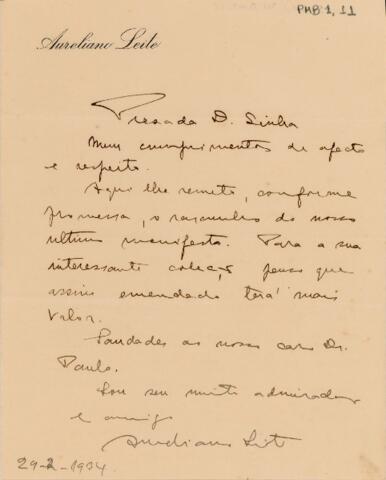 PMB 1, 11
Aureliano Leite
Presada D. Sinha
Meus cumprimentos de afecto
e respeito.
Aqui lhe remeto, conforme
promessa, o rascunho do nosso
ultimo manifesto. Para a sua
interessante colecç, penso que
assim emendado terá mais
valor.
Saudades ao nosso caro Dr.
Paulo.
Sou seu muito admirador
e amigo
Aureliano Leite
29-2-1934